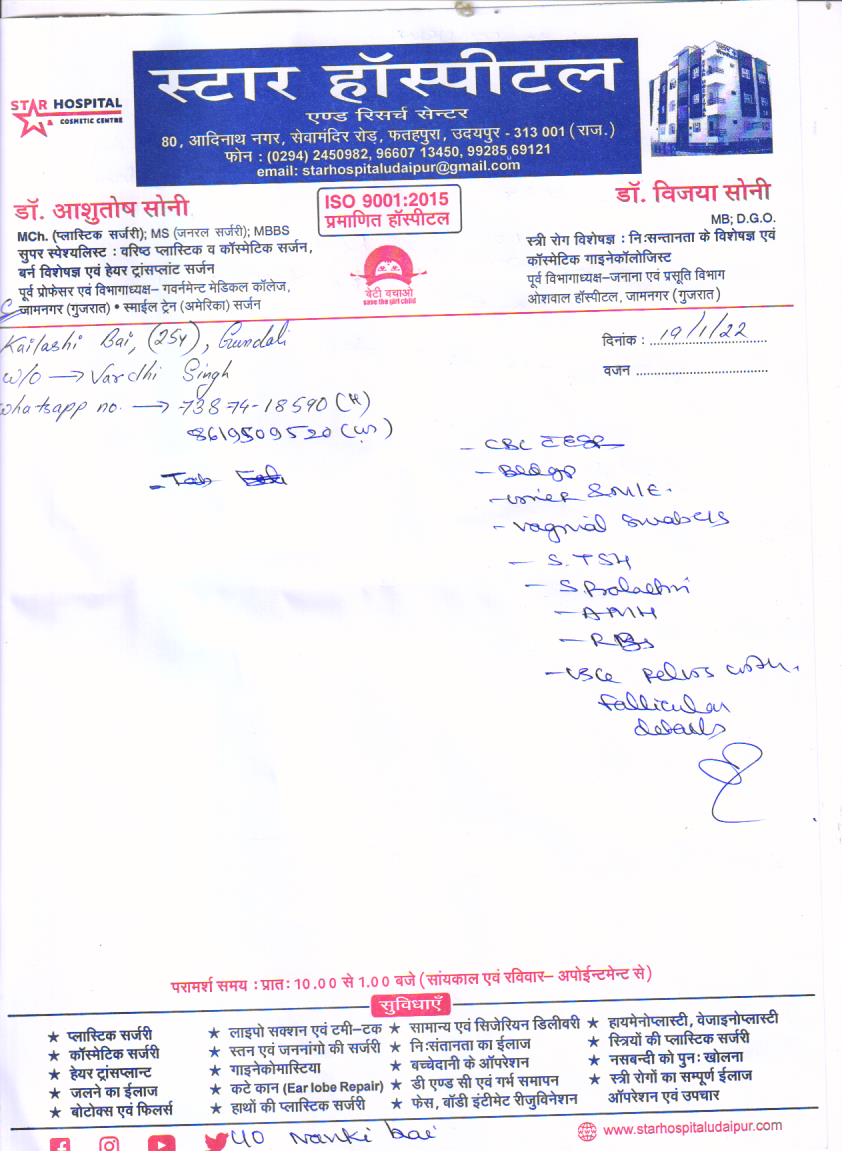 स्टार हॉस्पीटल
एण्ड रिसर्च सेन्टर
80, आदिनाथ नगर, सेवामंदिर रोड़, फतहपुरा, उदयपुर - 313 001 (राज.)
फोन : (0294) 2450982, 96607 13450, 99285 69121
email: starhospitaludaipur@gmail.com
STAR HOSPITAL
& COSMETIC CENTRE
डॉ. आशुतोष सोनी
MCh. (प्लास्टिक सर्जरी); MS (जनरल सर्जरी); MBBS
सुपर स्पेश्यलिस्ट : वरिष्ठ प्लास्टिक व कॉस्मेटिक सर्जन,
बर्न विशेषज्ञ एवं हेयर ट्रांसप्लांट सर्जन
पूर्व प्रोफेसर एवं विभागाध्यक्ष– गवर्नमेन्ट मेडिकल कॉलेज,
जामनगर (गुजरात) • स्माईल ट्रेन (अमेरिका) सर्जन
ISO 9001:2015
प्रमाणित हॉस्पीटल
बेटी बचाओ
save the girl child
डॉ. विजया सोनी
MB; D.G.O.
स्त्री रोग विशेषज्ञ : नि:सन्तानता के विशेषज्ञ एवं
कॉस्मेटिक गाइनेकोलॉजिस्ट
पूर्व विभागाध्यक्ष–जनाना एवं प्रसूति विभाग
ओशवाल हॉस्पीटल, जामनगर (गुजरात)
Kailashi Bai, (25y), Gundali
w/o → Vardhi Singh
whatsapp no. → 73874-18590 (H)
8619509520 (w)
दिनांक : 19/1/22
वजन
- Tab
- CBC ESR
- Bld gp
- Urine
- Vaginal swab c/s
- S. TSH
- S. Prolactin
- AMH
- RBS
- USG Pelvis with
follicular
details
परामर्श समय : प्रात: 10.00 से 1.00 बजे (सांयकाल एवं रविवार– अपोईन्टमेन्ट से)
सुविधाएँ
★ प्लास्टिक सर्जरी
★ कॉस्मेटिक सर्जरी
★ हेयर ट्रांसप्लान्ट
★ जलने का ईलाज
★ बोटोक्स एवं फिलर्स
★ लाइपो सक्शन एवं टमी–टक
★ स्तन एवं जननांगो की सर्जरी
★ गाइनेकोमास्टिया
★ कटे कान (Ear lobe Repair)
★ हाथों की प्लास्टिक सर्जरी
★ सामान्य एवं सिजेरियन डिलीवरी
★ नि:संतानता का ईलाज
★ बच्चेदानी के ऑपरेशन
★ डी एण्ड सी एवं गर्भ समापन
★ फेस, बॉडी इंटीमेट रीजुविनेशन
★ हायमेनोप्लास्टी, वेजाइनोप्लास्टी
★ स्त्रियों की प्लास्टिक सर्जरी
★ नसबन्दी को पुन: खोलना
★ स्त्री रोगों का सम्पूर्ण ईलाज
ऑपरेशन एवं उपचार
Nanki bai
www.starhospitaludaipur.com